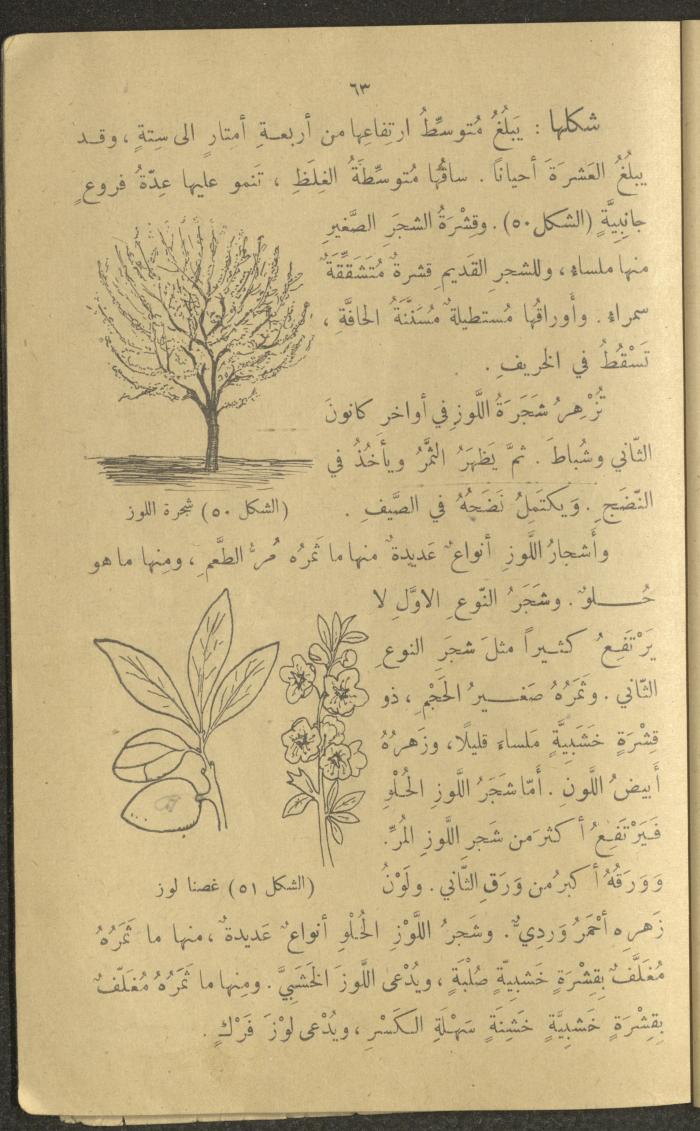 ٦٣
شكلها : يَبلُغُ مُتوسِّطُ ارتِفاعِها من أربعـةِ أمتارٍ الى سِتةٍ ، وقـد
يبلُغُ العَشرَةَ أحياناً . ساقُها مُتوسِّطَةُ الغِلَظِ ، تَنمو عليها عِدّةُ فروعٍ
جانِبِيَّةٍ (الشكل ٥٠) . وقِشْرَةُ الشجَرِ الصَّغيرِ
منها ملساء ، وللشجرِ القَديمِ قشرةٌ مُتَشَقِّقَةٌ
سمراء . وأَوراقُها مُستطيلةٌ مُسَنَّنَةُ الحافَّةِ ،
تَسْقُطُ في الخريفِ .
تُزْهِرُ شَجَرَةُ اللَّوزِ في أواخر كانونَ
الثّاني وشُباطَ . ثمَّ يَظهَرُ الثَّمَرُ ويأخُذُ في
النّضَجِ . وَيكتمِلُ نَضَجُهُ في الصَّيفِ .
(الشكل ٥٠) شجرة اللوز
وأَشجارُ اللَّوزِ أنواعٌ عَديدةٌ منها ما ثَمرُه مُرُّ الطَّعمِ ، ومِنها ما هو
حُـــلوٌ . وشَجَرُ النّوعِ الاوَّلِ لا
يَرْتَفِعُ كثيراً مثلَ شجَرِ النوعِ
الثّاني . وثَمَرُهُ صَغــيرُ الحَجْمِ ، ذو
قِشْرَةٍ خَشَبِيَّةٍ مَلساءَ قليلًا ، وزَهرُهُ
أَبيضُ اللَّون . أَمّا شَجَرُ اللَّوزِ الحُلْوِ
فَـيَرْتَفِعُ أكثرَ من شَجرِ اللَّوزِ المُرِّ .
وَوَرَقُهُ أكبرُ من وَرَقِ الثّاني . ولَوْنُ
(الشكل ٥١) غصنا لوز
زَهره أحْمَرُ وَردِيٌّ . وشَجرُ اللَّوْزِ الحُلْوِ أنواعٌ عَديدةٌ ، منها ما ثَمَرُهُ
مُغلَّفٌ بِقِشْرَةٍ خَشبيّةٍ صُلْبَةٍ ، ويُدْعى اللَّوزَ الخَشَبِيَّ . ومِنها ما ثَمَرُهُ مُغَلّفٌ
بِقِشْرَةٍ خَشبِيَّةٍ خَشِنَةٍ سَهْلَةِ الكَسْرِ ، ويُدْعى لوْزَ فَرْكٍ .